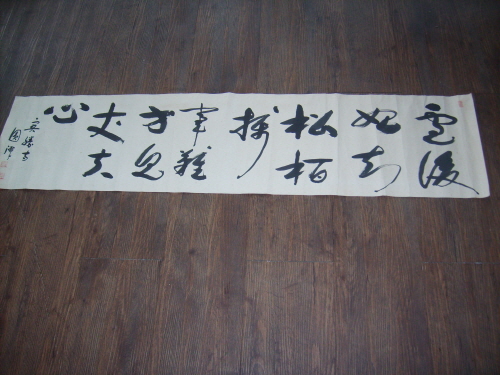 雪後
始知
松柏
操
事難
方見
丈夫
心